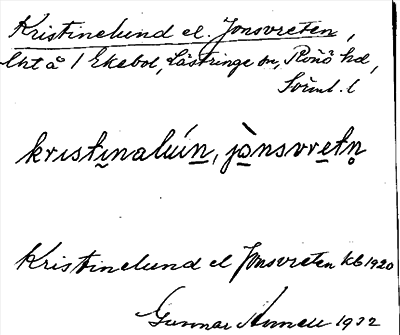 Kristinelund el. Jonsvreten,
lht å 1 Ekebol, Lästringe sn, Rönö hd,
Söml. l
kristinalún, jònsvretn
Kristinelund el Jonsvreten kb 1920
Gunnar Annell 1932